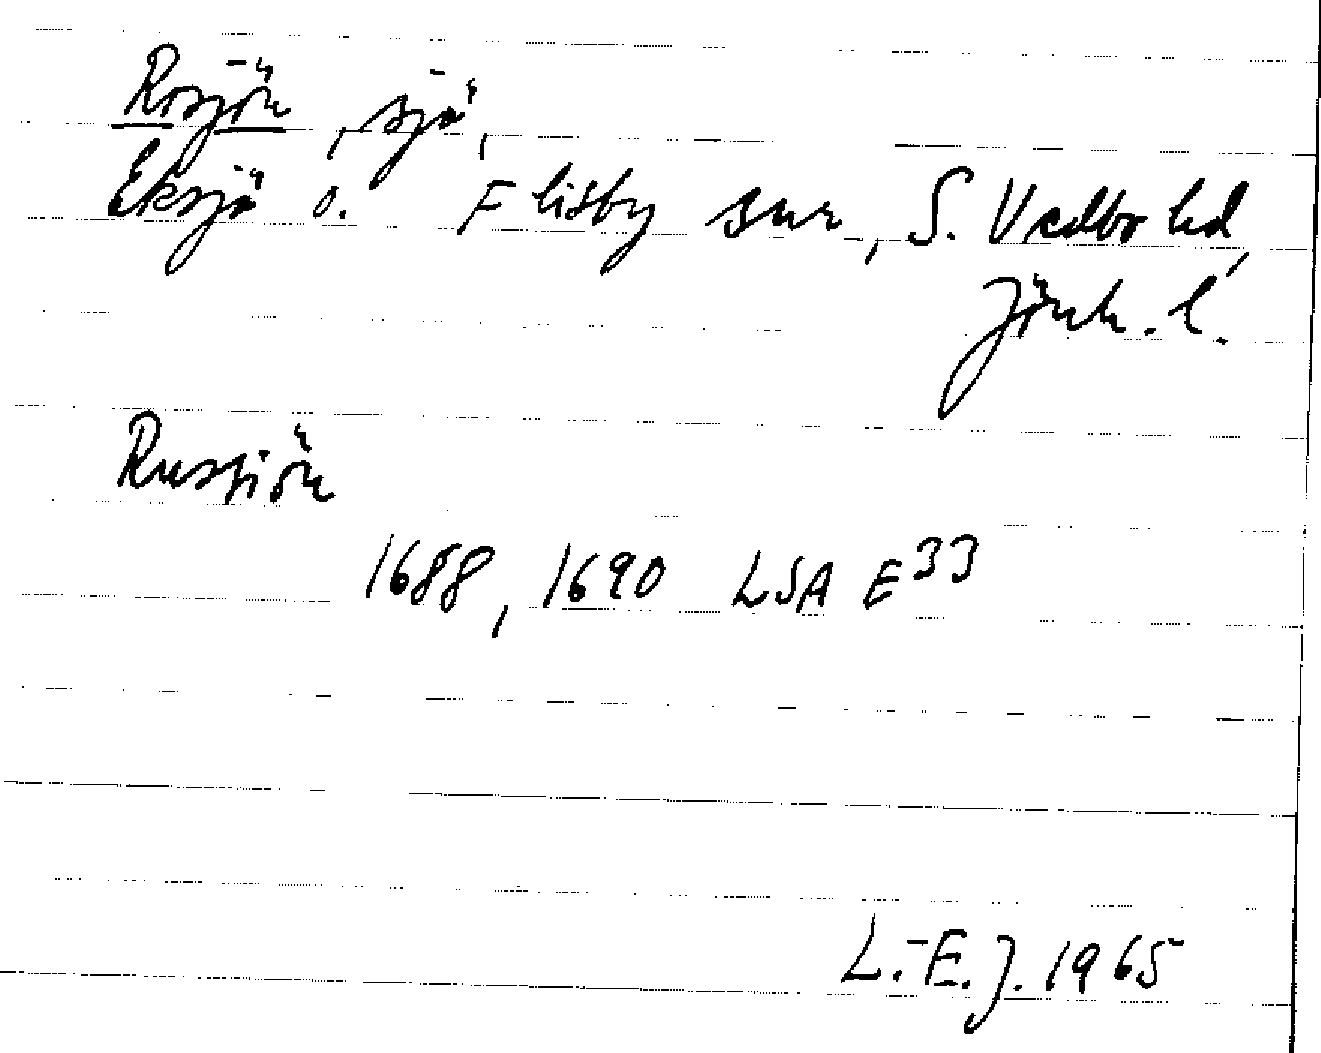 Rosjön, sjö,
Eksjö o. Flisby snr, S. Vedbo hd,
Jönk. l.
Russiön
1688, 1690 LSA E33
L.-E. J. 1965